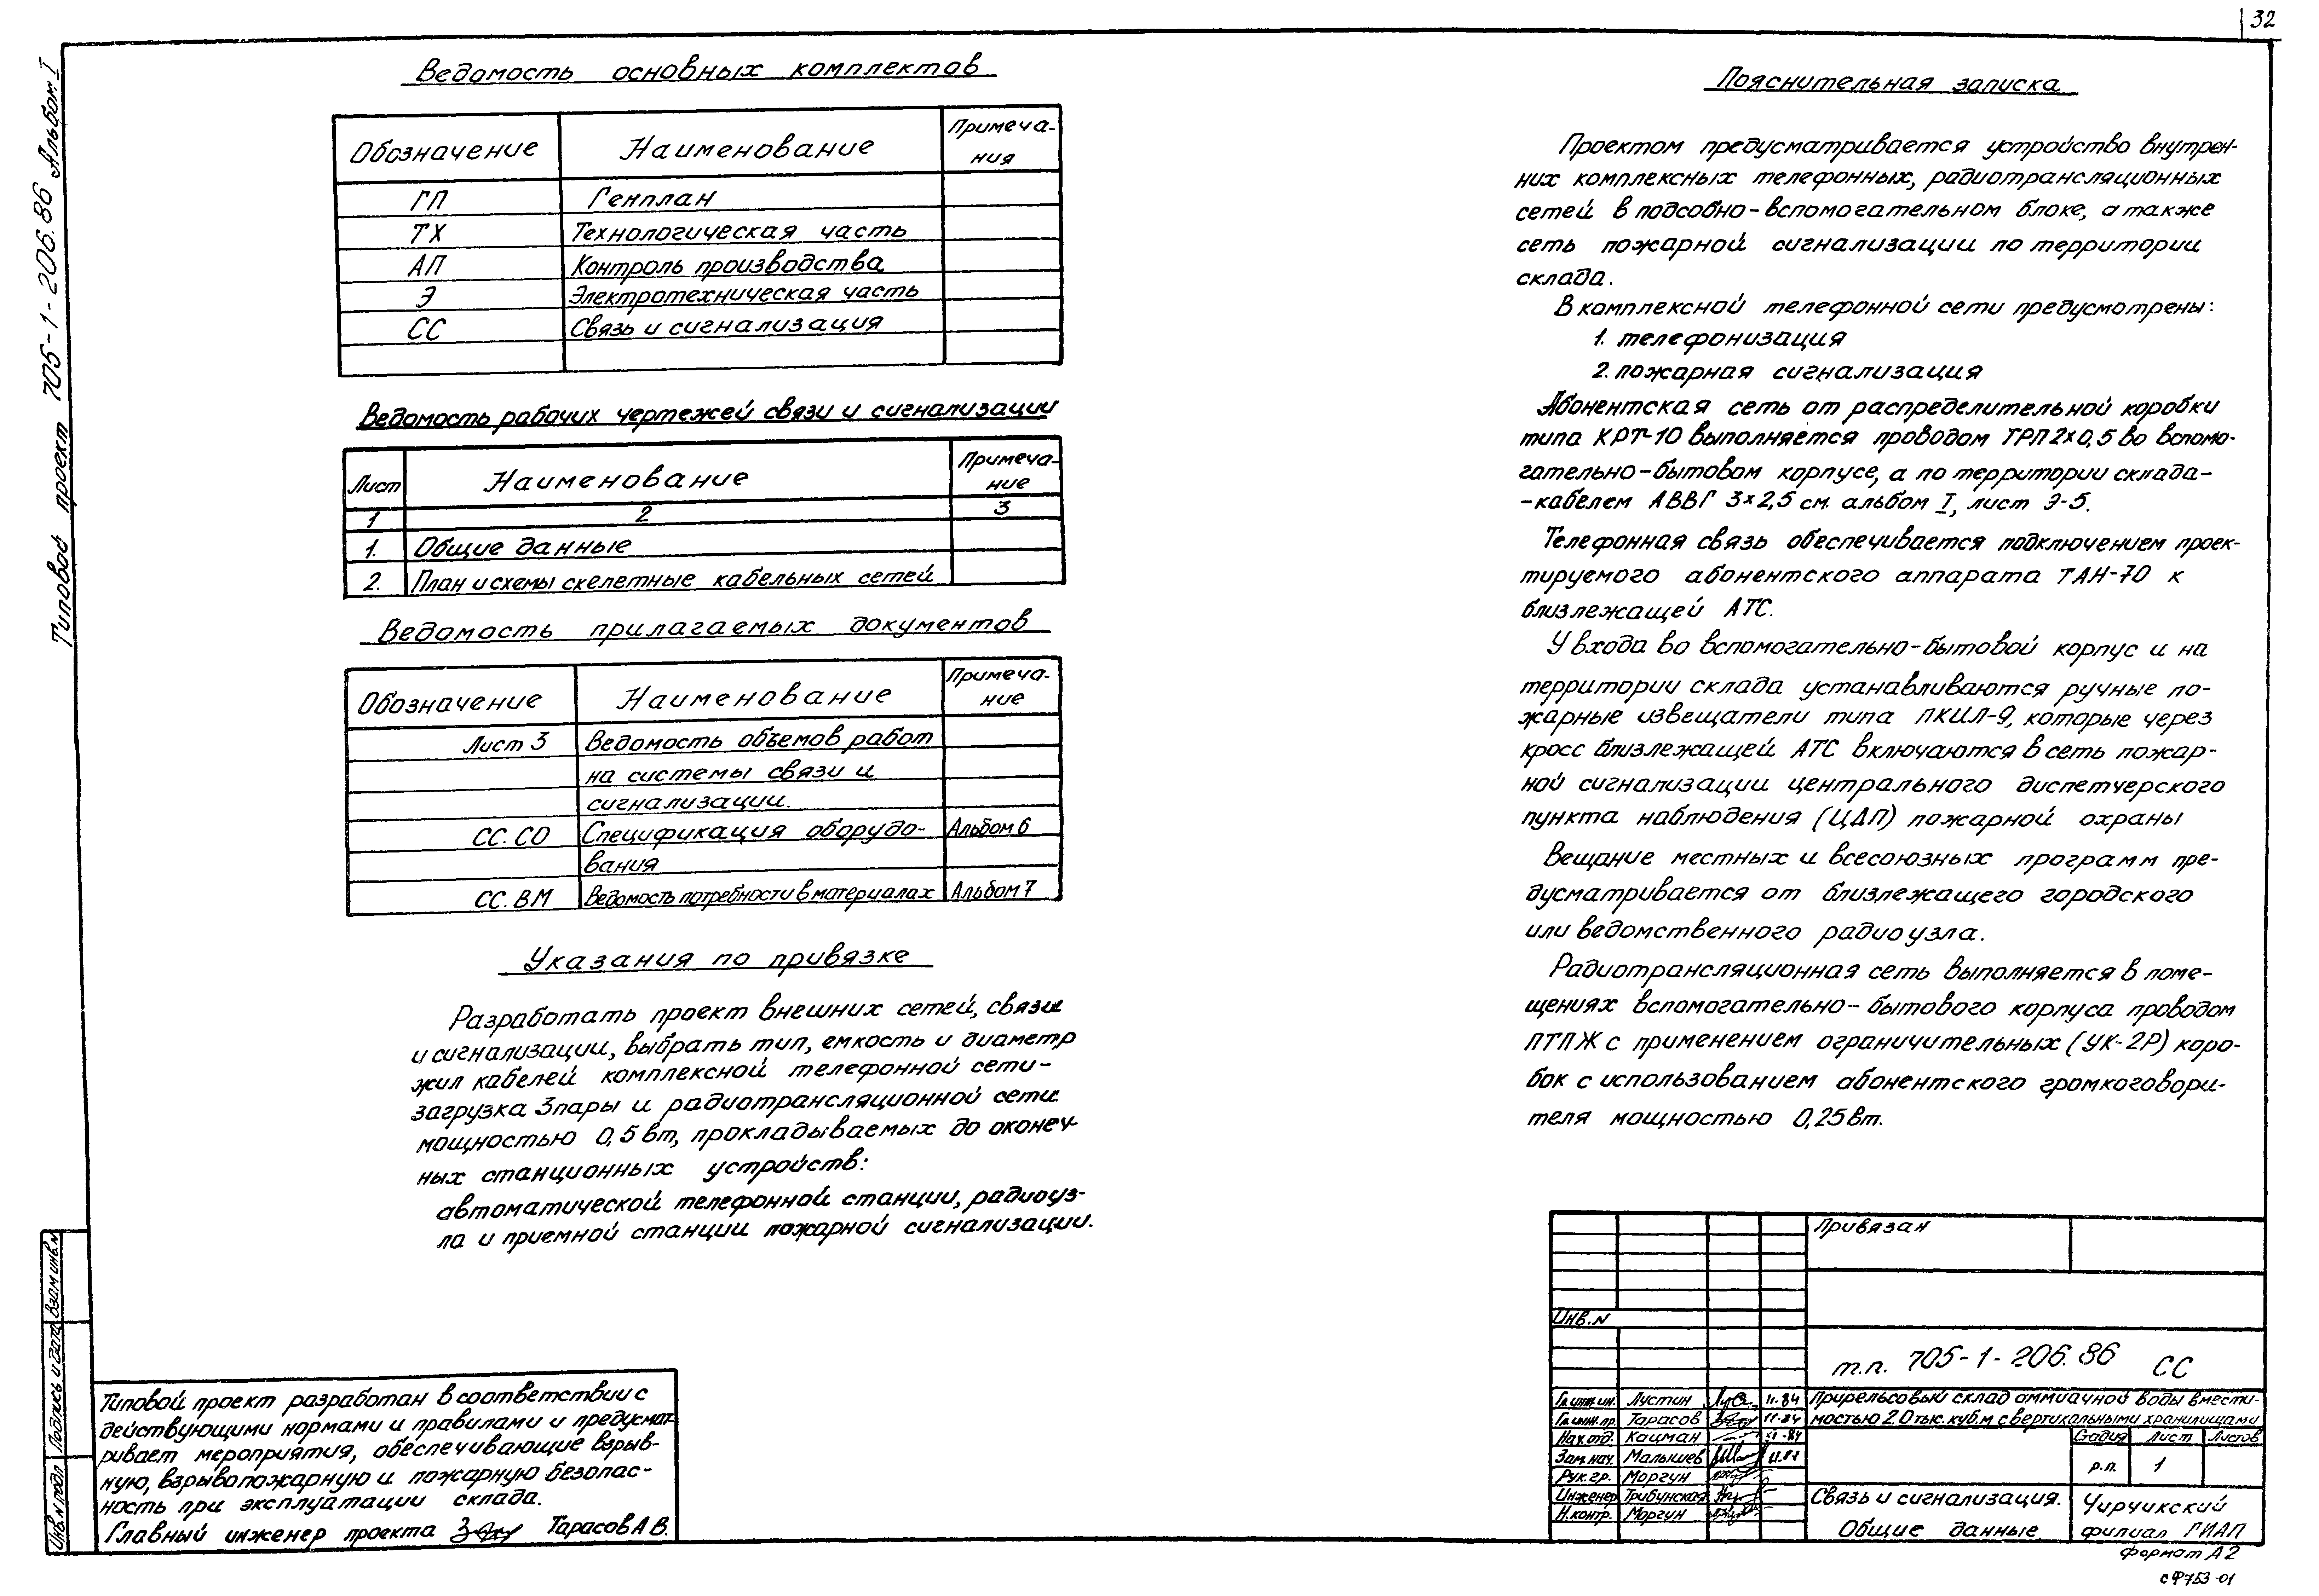 32
Типовой проект 705-1-206.86 Альбом I
Ведомость основных комплектов
Обозначение Наименование Примеча-
ния
ГП Генплан
ТХ Технологическая часть
АП Контроль производства
Э Электротехническая часть
СС Связь и сигнализация
Ведомость рабочих чертежей связи и сигнализации
Лист Наименование Примеча-
ние
1 2 3
1. Общие данные
2. План и схемы скелетные кабельных сетей
Ведомость прилагаемых документов
Обозначение Наименование Примеча-
ние
Лист 3 Ведомость объемов работ
на системы связи и
сигнализации.
СС.СО Спецификация оборудо- Альбом 6
вания
СС.ВМ Ведомость потребности в материалах Альбом 7
Указания по привязке
Разработать проект внешних сетей, связи
и сигнализации, выбрать тип, емкость и диаметр
жил кабелей комплексной телефонной сети-
загрузка 3 пары и радиотрансляционной сети
мощностью 0,5 вт, прокладываемых до оконеч-
ных станционных устройств:
автоматической телефонной станции, радиоуз-
ла и приемной станции пожарной сигнализации.
Типовой проект разработан в соответствии с
действующими нормами и правилами и предусмат-
ривает мероприятия, обеспечивающие взрыв-
ную, взрывопожарную и пожарную безопас-
ность при эксплуатации склада.
Главный инженер проекта Тарасов А В.
Взам инв.N
Подпись и дата
Инв.N подл
Пояснительная записка
Проектом предусматривается устройство внутрен-
них комплексных телефонных, радиотрансляционных
сетей в подсобно-вспомогательном блоке, а также
сеть пожарной сигнализации по территории
склада.
В комплексной телефонной сети предусмотрены:
1. телефонизация
2. пожарная сигнализация
Абонентская сеть от распределительной коробки
типа КРТ-10 выполняется проводом ТРП 2×0,5 во вспомо-
гательно-бытовом корпусе, а по территории склада-
-кабелем АВВГ 3×2,5 см. альбом I, лист Э-5.
Телефонная связь обеспечивается подключением проек-
тируемого абонентского аппарата ТАН-70 к
близлежащей АТС.
У входа во вспомогательно-бытовой корпус и на
территории склада устанавливаются ручные по-
жарные извещатели типа ПКИЛ-9, которые через
кросс близлежащей АТС включаются в сеть пожар-
ной сигнализации центрального диспетчерского
пункта наблюдения (ЦДП) пожарной охраны
Вещание местных и всесоюзных программ пре-
дусматривается от близлежащего городского
или ведомственного радиоузла.
Радиотрансляционная сеть выполняется в поме-
щениях вспомогательно-бытового корпуса проводом
ПТПЖ с применением ограничительных (УК-2Р) коро-
бок с использованием абонентского громкоговори-
теля мощностью 0,25 вт.
Привязан
Инв.N
т.п. 705-1-206.86 СС
Гл.инж.ин. Лустин 11.84 Прирельсовый склад аммиачной воды вмести-
Гл.инж.пр. Тарасов 11.84 мостью 2.0 тыс. куб.м с вертикальными хранилищами
Нач.отд. Кацман XI-84 Стадия Лист Листов
Зам.нач. Малышев 11.84 р.п. 1
Рук.гр. Моргун
Инженер Трибунская Связь и сигнализация. Чирчикский
Н.контр. Моргун Общие данные. филиал ГИАП
Формат А2
сФ753-01